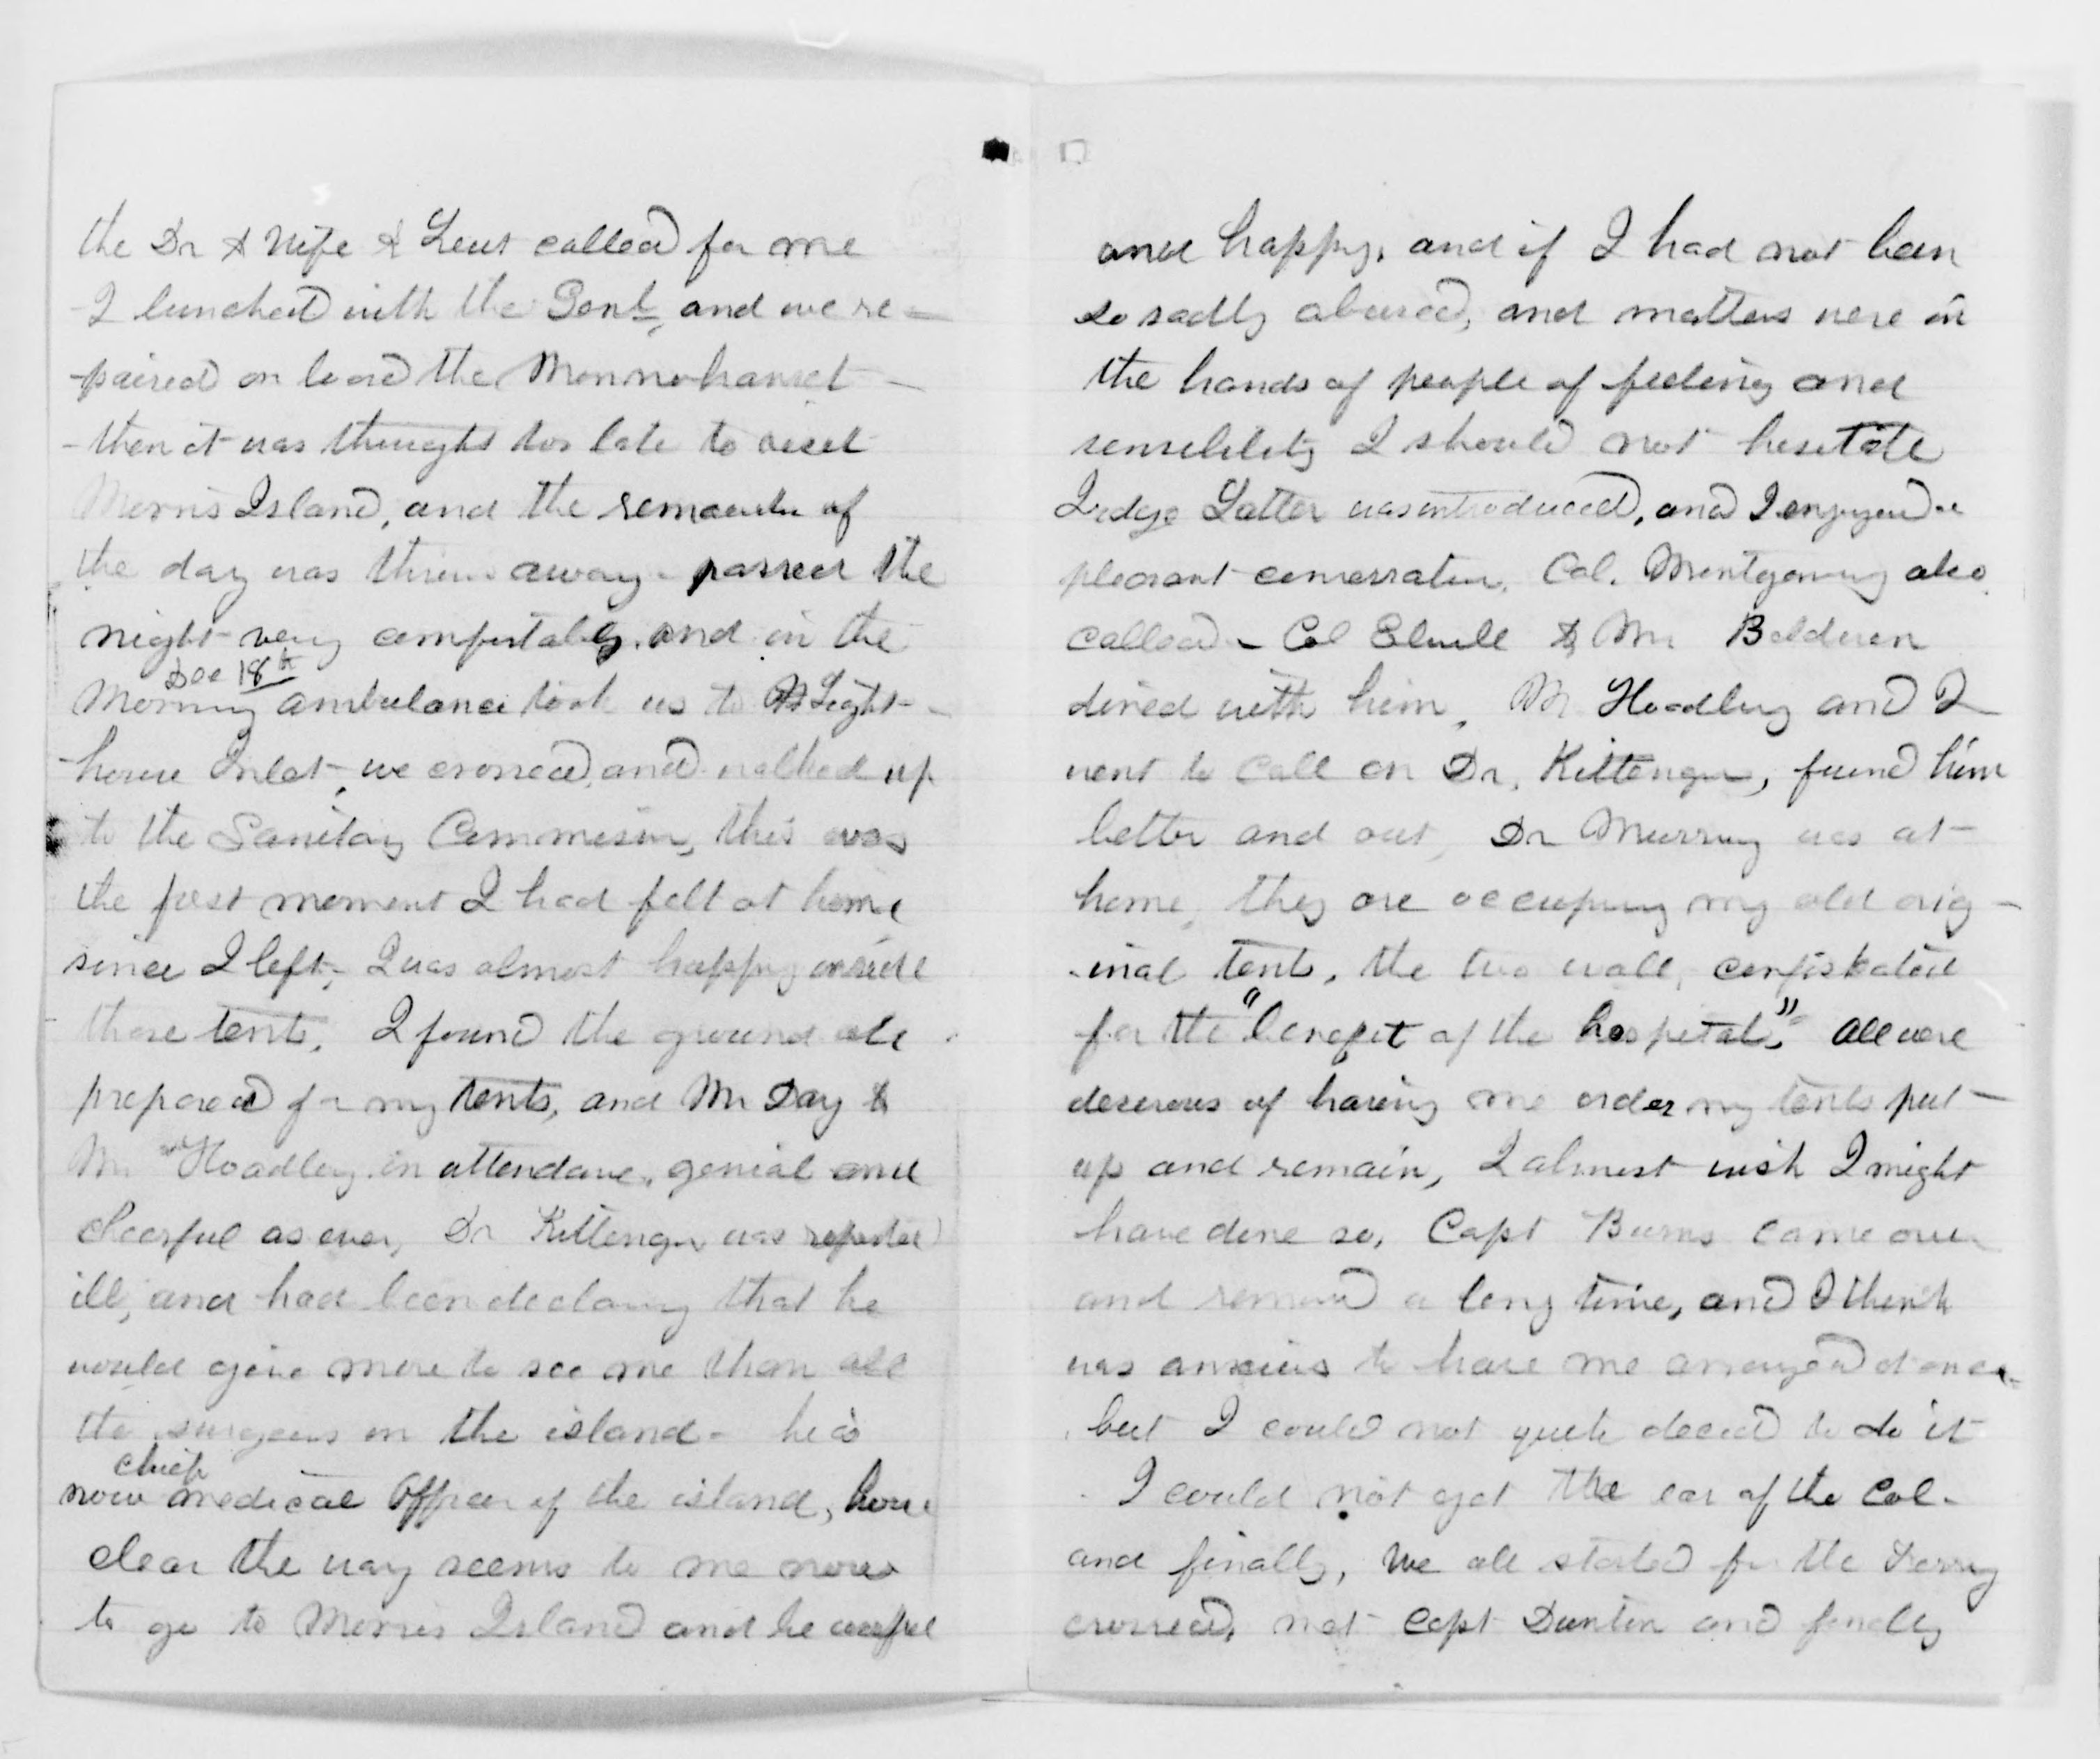 the Dr & Wife & Leut called for me
I lunched with the Genl, and we re-
-paired on board the Monnohanset -
- then it was thought too late to visit
Morris Island, and the remainder of
the day was thrown away - passed the
night very comfortably. and in the
Dec 18th
Morning ambulance took us to Light-
-house Inlet, we crossed, and walked up
to the Sanitary Commission, this was
the first moment I had felt at home
since I left, I was almost happy inside
those tents. I found the ground all
prepared for my tents, and Mr Day &
Mr Hoadley in attendance, genial and
cheerful as ever, Dr Kittenger was reported
ill, and had been declaring that he
would give more to see me than all
the surgeons on the island - he is
chief
now medical officer of the island, how
clear the way seems to me now
to go to Morris Island and be useful
and happy, and if I had not been
so sadly abused, and matters were in
the hands of people of feeling and
sensibility I should not hesitate
Judge Latter was introduced, and I enjoyed a
pleasant conversation. Col. Montgomery also
called - Col Elwell & Mr Balduen
dined with him, Mr Hoadley and I
went to call on Dr. Kittenger, found him
better and out, Dr Murray was at-
home, they are occupying my old orig-
-inal tent, the two wall, confiskated
for the "benefit of the hospital". All were
deserous of having me order my tents put-
up and remain, I almost wish I might
have done so. Capt Burns came over
and remained a long time, and I think
was anxious to have me arranged at once
but I could not quite decide to do it
I could not get the ear of the Col.
and finally, we all started for the Ferry
crossed, met Capt Dunton and finally